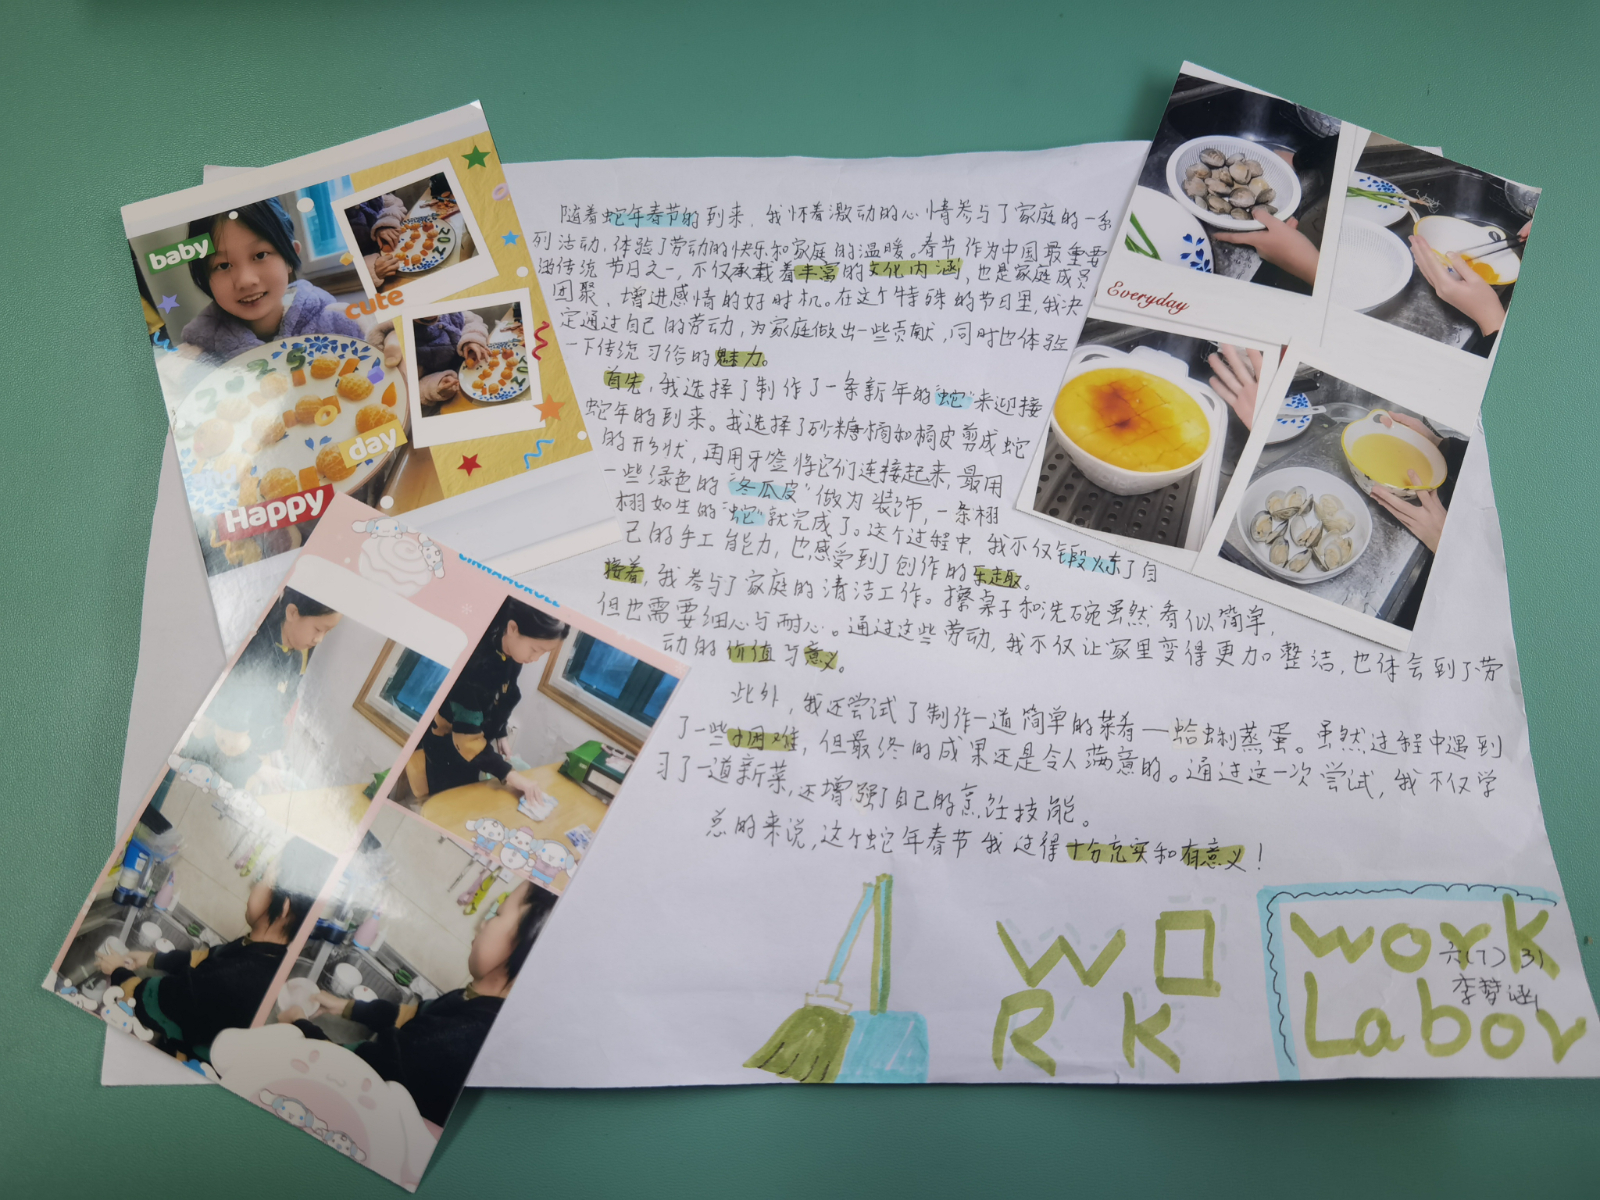 随着蛇年春节的到来，我怀着激动的心情参与了家庭的一系
列活动，体验了劳动的快乐和家庭的温暖。春节作为中国最重要
的传统节日之一，不仅承载着丰富的文化内涵，也是家庭成员
团聚、增进感情的好时机。在这个特殊的节日里，我决
定通过自己的劳动，为家庭做出一些贡献，同时也体验
一下传统习俗的魅力。
首先，我选择了制作了一条新年的“蛇”来迎接
蛇年的到来。我选择了砂糖橘和橘皮剪成蛇
的形状，再用牙签将它们连接起来，最用
一些绿色的“冬瓜皮”做为装饰，一条栩
栩如生的“蛇”就完成了。这个过程中，我不仅锻炼了自
己的手工能力，也感受到了创作的乐趣。
接着，我参与了家庭的清洁工作。擦桌子和洗碗虽然看似简单，
但也需要细心与耐心。通过这些劳动，我不仅让家里变得更加整洁，也体会到了劳
动的价值与意义。
此外，我还尝试了制作一道简单的菜肴—蛤蜊蒸蛋。虽然过程中遇到
了一些困难，但最终的成果还是令人满意的。通过这一次尝试，我不仅学
习了一道新菜，还增强了自己的烹饪技能。
总的来说，这个蛇年春节我过得十分充实和有意义！
baby
cute
2025
day
Happy
Everyday
CINNAMOROLL
WO
RK
work
Labor
六(7) 31
李梦涵